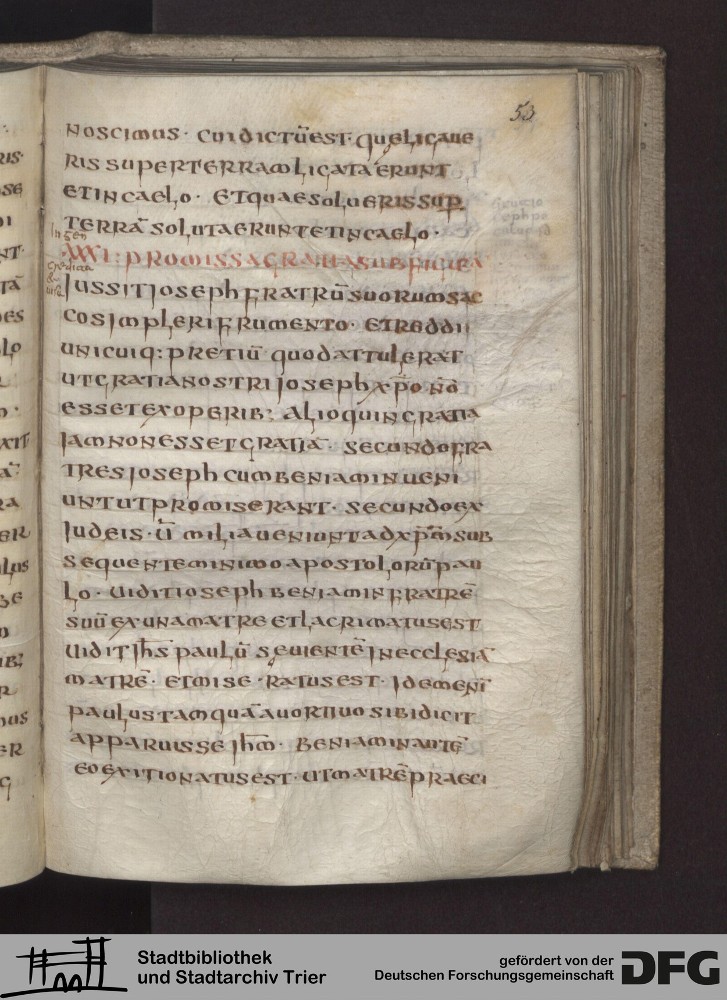 53
NOSCIMUS· CUIDICTŪEST· QUELIGAUE
RISSUPERTERRAMLIGATAERUNT
ETINCAELO· ETQUAESOLUERISSUP̄
TERRĀSOLUTAERUNTETINCAELO·
XXXI: PROMISSAGRATIASUB
IUSSITIOSEPHFRATRŪSUORUMSAC
COSIMPLERIFRUMENTO· ETREDDI
UNICUIQ: PRETIŪ QUODATTULERAT
UTGRATIANOSTRIIOSEPHXP̄ONŌ
ESSETEXOPERIB: ALIOQUINGRATIA
IAMNONESSETGRATIĀ· SECUNDOFRA
TRESIOSEPHCUMBENIAMINUENI
UNTUTPROMISERANT· SECUNDOEX
IUDEIS· Ū MILIAUENIUNTADXP̄M̄SUB
SEQUENTEMINIMOAPOSTOLORŪPAU
LO· UIDITIOSEPHBENIAMINFRATRĒ
SUŪEXUNAMATREETLACRIMATUSEST
UIDITIH̄SPAULŪ SEUIENTĒINECCLESIĀ
MATRĒ· ETMISERATUSEST· IDEMENĪ
PAULUSTAMQUĀAUORTIUOSIBIDICIT
APPARUISSEIH̄M̄· BENIAMINAUTĒ
EOEXITIONATUSEST· UTMATRĒPRAECI
Stadtbibliothek
und Stadtarchiv Trier
gefördert von der
Deutschen Forschungsgemeinschaft
DFG